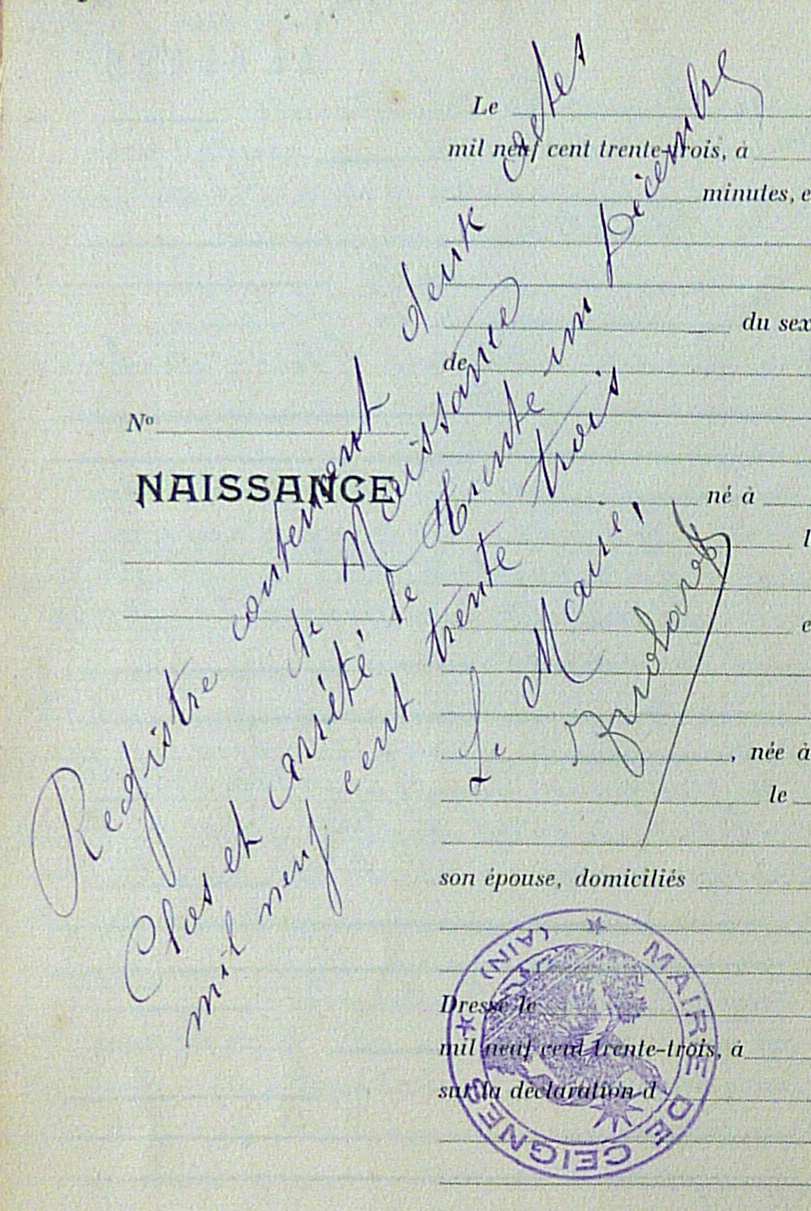 Le
mil neuf cent trente-trois, à
minutes, e
du sex
de
Nº
NAISSANCE
né à
l
e
, née à
le
son épouse, domiciliés
Dressé le
mil neuf cent trente-trois, à
sur la déclaration d
Registre contenant deux actes
de Naissance
Clos et arrêté le Trente un Décembre
mil neuf cent trente trois
Le Maire,
MAIRE DE CEIGNES
(AIN)